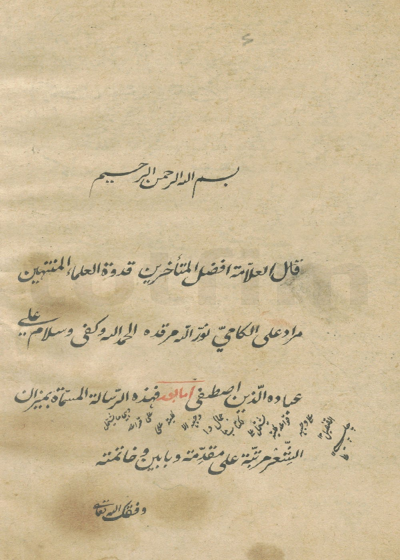 بسم الله الرحمن الرحيم
قال العلامة افضل المتأخرين قدوة العلماء المنتهين
مراد على الكامى نور الله مرقده الحمد لله وكفى وسلام على
عباده الذين اصطفى اما بعد فهذه الرسالة المسماة بميزان
الشعر مرتبة على مقدمة وبابين وخاتمة
وفقك الله تعالى